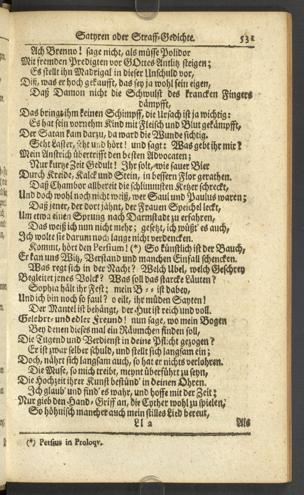 Satyren oder Straff-Gedichte. 531
Ach Brenno! sage nicht, als müsse Polidor
Mit fremden Predigten vor GOttes Antlitz steigen;
Es stellt ihn Madrigal in dieser Unschuld vor,
Diß, was er hoch gekaufft, das sey ja wohl sein eigen,
Daß Damon nicht die Schwulst des krancken Fingers
dämpfft,
Das bringt ihm keinen Schimpff, die Ursach ist ja wichtig:
Es hat sein vornehm Kind mit Fleisch und Blut gekämpfft,
Der Satan kam darzu, da ward die Wunde süchtig.
Seht Laster, seht und hört! und sagt: Was gebt ihr mir?
Mein Anstrich übertrifft den besten Advocaten;
Nur kurtze Zeit Gedult! Ihr solt, wie sauer Bier
Durch Kreide, Kalck und Stein, in bessern Flor gerathen.
Daß Chambor allbereit die schlimmsten Ketzer schreckt,
Und doch wohl noch nicht weiß, wer Saul und Paulus waren;
Daß jener, der dort jähnt, der Frauen Speichel leckt,
Um etwa einen Sprung nach Darmstadt zu erfahren,
Das weiß ich nun nicht mehr; gesetzt, ich wüßt' es auch,
Ich wolte sie darum noch lange nicht verdencken.
Kommt, hört den Persum! (*) So künstlich ist der Bauch,
Er kan uns Witz, Verstand und manchen Einfall schencken.
Was regt sich in der Nacht? Welch Übel, welch Geschrey
Begleitet jenes Volck? Was soll das starcke Läuten?
Sophia hält ihr Fest; mein B-- ist dabey,
Und ich bin noch so faul? o eilt, ihr müden Sayten!
Der Mantel ist behängt, der Hut ist reich und voll.
Gelehrt- und edler Freund! nun sage, wo mein Bogen
Bey denen dieses mal ein Räumchen finden soll,
Die Tugend und Verdienst in deine Pflicht gezogen?
Er ist zwar selber schuld, und stellt sich langsam ein;
Doch, nährt sich langsam auch, so hat er nichts verlohren.
Die Muse, so mich treibt, meynt überführt zu seyn,
Die Hochzeit ihrer Kunst bestünd' in deinen Ohren.
Ich glaub' und find' es wahr, und hoffe mit der Zeit;
Nur gieb den Hand-Griff an, die Cyther wohl zu spielen,
So höhnisch mancher auch mein stilles Lied bereut,
Ll 2 Als
(*) Persius in Prologv.